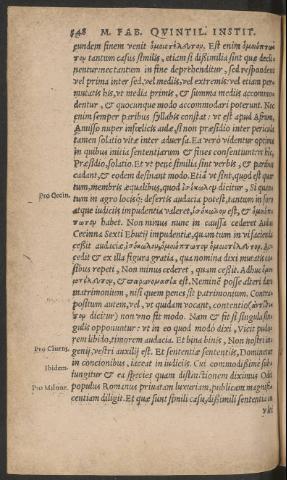 548 M. FAB. QVINTIL. INSTIT.
eundem finem venit ὁμοιοτέλευτον. Est enim ὁμοιόπτω
τον tantum casus similis, etiam si dissimilia sint quæ decli
nentur: nec tantum in fine deprehenditur, sed respondent
vel prima inter se, vel mediis, vel extremis: vel etiam per-
mutatis his, vt media primis, & summa mediis accommo
dentur, & quocunque modo accommodari possunt. Nec
enim semper paribus syllabis constat: vt est apud Afrum,
Amisso nuper infœlicis aulæ, si non præsidio inter pericula
tamen solatio vitæ inter aduersa. Ea vero videntur optima
in quibus initia sententiarum & fines consentiunt: vt his,
Præsidio, solatio. Et vt pene similia sint verbis, & paribus
cadant, & eodem desinant modo. Etiã vt sint, quod est quar
tum, membris æqualibus, quod ἰσόκωλον dicitur, Si quan-
Pro Cecin. tum in agro locisq; desertis audacia potest, tantum in foro
atque iudiciis impudentia valeret, ἰσόκωλον est, & ὁμοιό-
πτωτον habet. Non minus nunc in caussa cederet Aulus
Cecinna Sexti Ebutij impudentiæ, quam tum in vi facienda
cessit audaciæ, ἰσόκωλον, ὁμοιόπτωτον ὁμοιοτέλευτον. Ac-
cedit & ex illa figura gratia, qua nomina dixi mutatis ca-
sibus repeti, Non minus cederet, quam cessit. Adhuc ὁμοι-
οτέλευτον, & παρονομασία est. Neminẽ posse alteri dare
matrimonium, nisi quem penes sit patrimonium. Contra-
positum autem, vel, vt quidam vocant, contentio (ἀντίθε-
τον dicitur) non vno fit modo. Nam & fit si singula sin-
gulis opponuntur: vt in eo quod modo dixi, Vicit pudo-
rem libido, timorem audacia. Et bina binis, Non nostri in-
Pro Cluent. genij, vestri auxilij est. Et sententiæ sententiis, Dominetur
Ibidem. in concionibus, iaceat in iudiciis. Cui commodissime sub-
iungitur & ea species quam distinctionem diximus Odit
Pro Milone. populus Romanus priuatam luxuriam, publicam magnifi-
centiam diligit. Et quæ sunt simili casu, dissimili sententia in